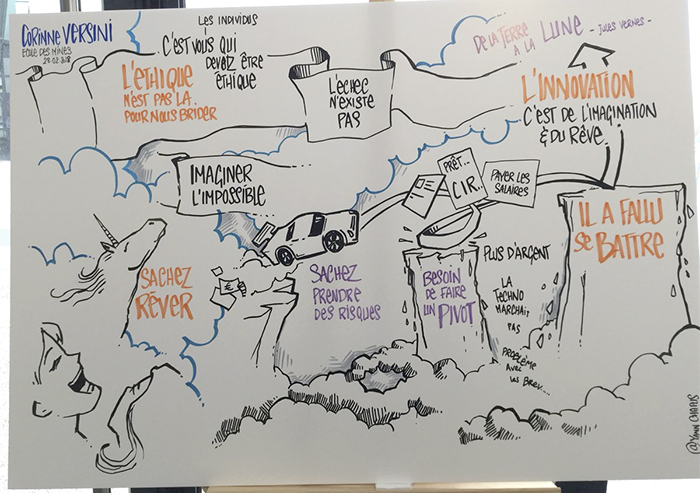 CORINNE VERSINI
ECOLE DES MINES
28.02.2018
LES INDIVIDUS
C'EST VOUS QUI
DEVEZ ÊTRE
ÉTHIQUE
L'ÉTHIQUE
N'EST PAS LÀ
POUR NOUS BRIDER
L'ÉCHEC
N'EXISTE
PAS
DE LA TERRE
À LA LUNE
- JULES VERNES -
L'INNOVATION
C'EST DE L'IMAGINATION
& DU RÊVE.
IMAGINER
L'IMPOSSIBLE
PRÊT...
CIR..
PAYER LES
SALAIRES
SACHEZ
RÊVER
€
SACHEZ
PRENDRE
DES RISQUES
BESOIN
DE FAIRE
UN PIVOT
PLUS D'ARGENT
LA
TECHNO
MARCHAIT
PAS
PROBLÈME
AVEC
LES BREV...
IL A FALLU
SE BATTRE